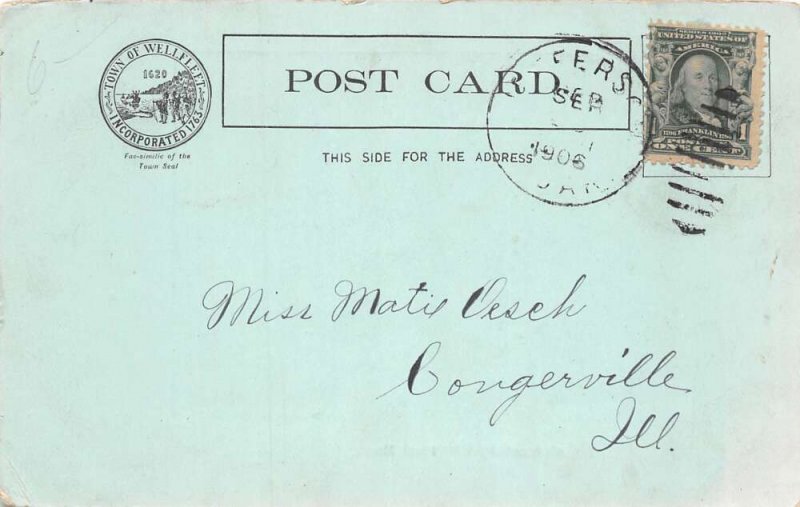 TOWN OF WELLFLEET
1620
INCORPORATED 1763
Fac-simile of the
Town Seal
POST CARD.
THIS SIDE FOR THE ADDRESS
SEP
1906
SERIES 1902
UNITED STATES OF
AMERICA
FRANKLIN
POSTAGE
ONE CENT
1
Miss Matie Oesch
Congerville
Ill.